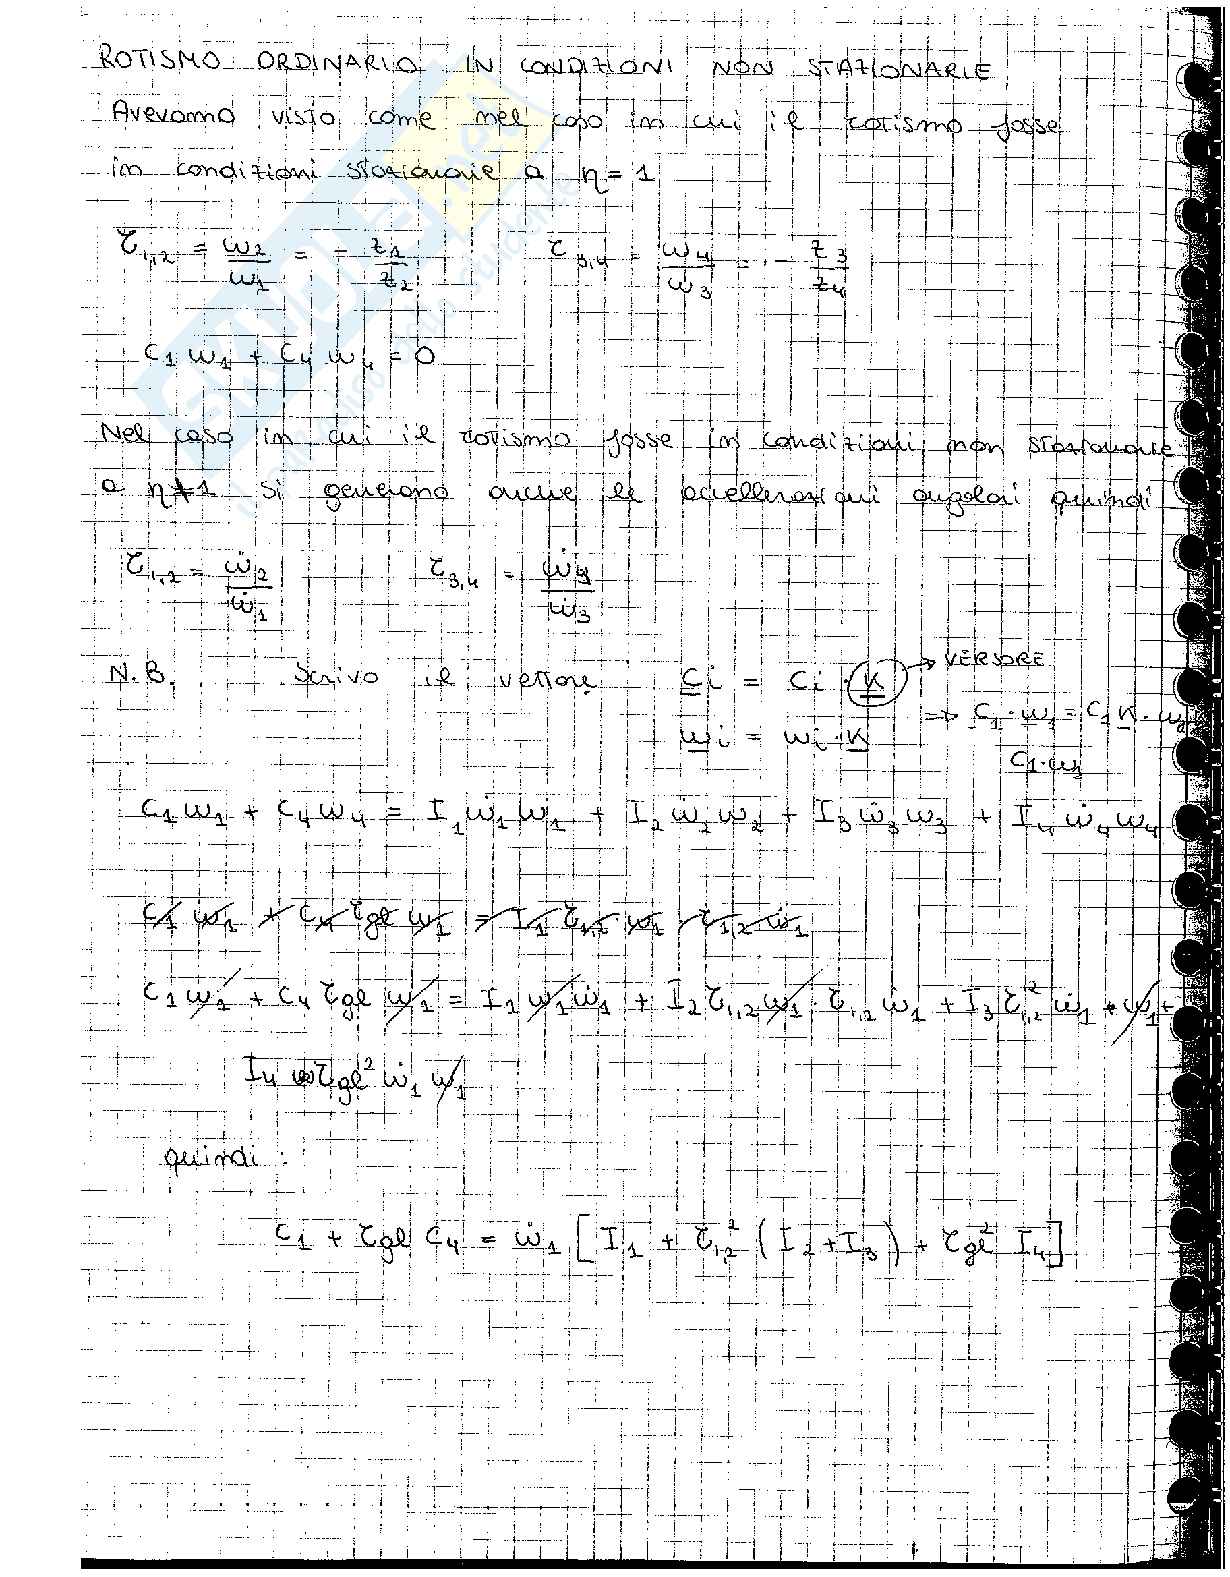 ROTISMO ORDINARIO IN CONDIZIONI NON STAZIONARIE
Avevamo visto come nel caso in cui il rotismo fosse
in condizioni stazionarie a η = 1
τ1,2 = ω2/ω1 = - z1/z2    τ3,4 = ω4/ω3 = - z3/z4
C1 ω1 + C4 ω4 = 0
Nel caso in cui il rotismo fosse in condizioni non stazionarie
a η≠1 si generano anche le accellerazioni angolari quindi
τ1,2 = ω̇2/ω̇1    τ3,4 = ω̇4/ω̇3
N.B. Scrivo il vettore C̲i = Ci · K̲ → VERSORE
ω̲i = ωi · K̲ => C̲1 · ω̲1 = C1 K̲ · ω1
C1·ω1
C1 ω1 + C4 ω4 = I1 ω̇1 ω1 + I2 ω̇2 ω2 + I3 ω̇3 ω3 + I4 ω̇4 ω4
C1 ω1 + C4 τgl ω1 = I1 τ1,2 ω1 τ1,2 ω̇1
C1 ω1 + C4 τgl ω1 = I1 ω1 ω̇1 + I2 τ1,2 ω1 · τ1,2 ω̇1 + I3 τ1,2² ω̇1 · ω1 +
I4 τgl² ω̇1 ω1
quindi :
C1 + τgl C4 = ω̇1 [ I1 + τ1,2² ( I2 + I3 ) + τgl² I4 ]